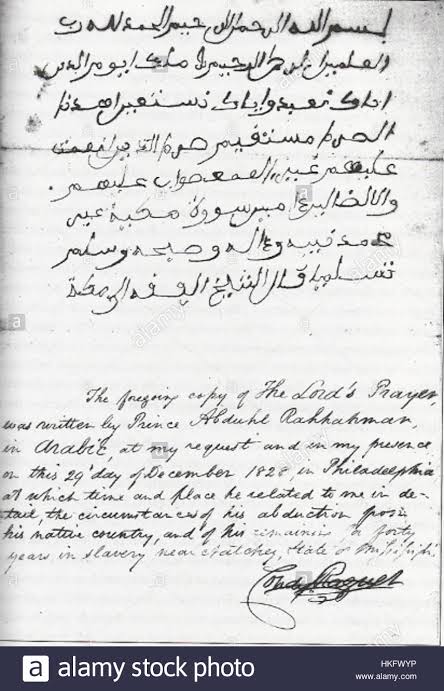 بسم الله الرحمان الرحيم الحمد لله رب
العلمين الرحيم ملك يوم الدين
اياك نعبد واياك نستعين اهدنا
الصرط مستقيم صرط الذين انعمت
عليهم غير المغضوب عليهم
امين سورة مكية
محمد نبيه واله وصحبه وسلم
تسليما قال الشيخ
The foregoing copy of The Lord's Prayer,
was written by Prince Abduhl Rahhahman,
in Arabic, at my request and in my presence
on this 29' day of December 1828, in Philadelphia
at which time and place he related to me in de-
tail, the circumstances of his abduction from
his native country, and of his remaining for forty
years in slavery near Natchez, State of Mississippi.
Condy Raguet
alamy stock photo
HKFWYP
www.alamy.com